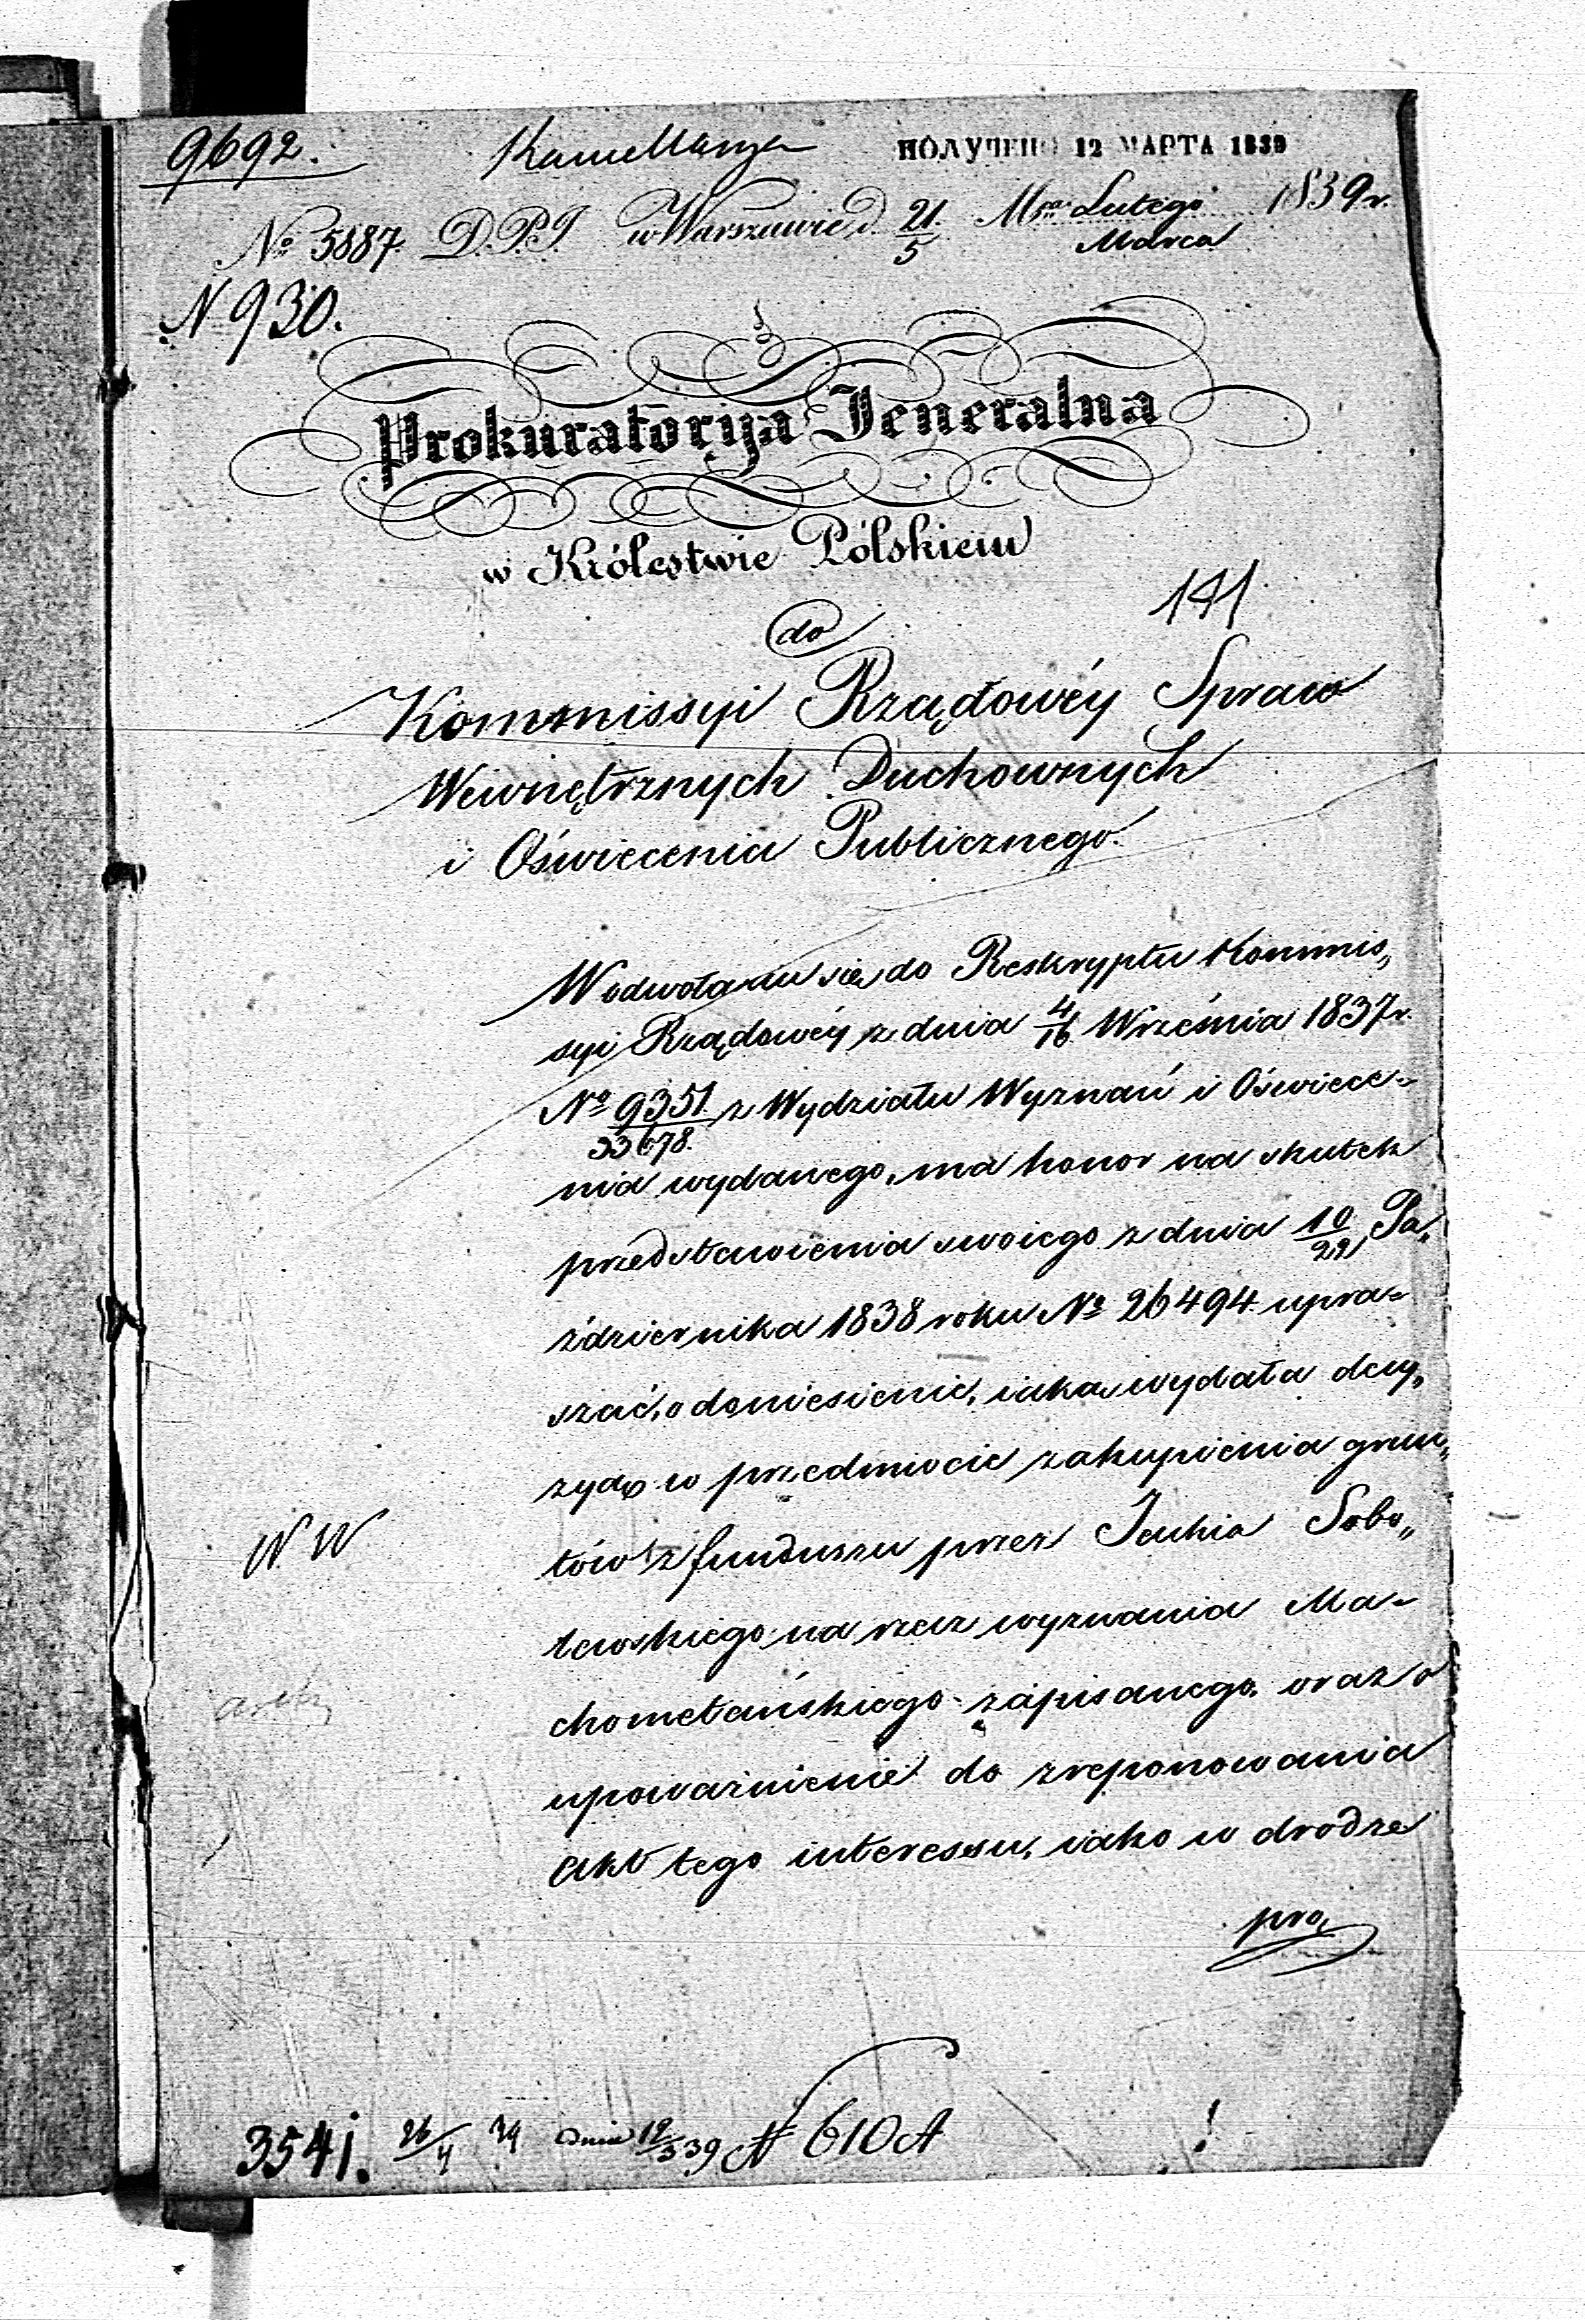 9692.
ПОЛУЧЕНО 12 МАРТА 1839
№ 5887. D.P.J w Warszawie d. 21/5 Mca Lutego/Marca 1839 r.
N 930.
Prokuratorya Jeneralna
w Królestwie Polskiem
141
do
Kommissyi Rządowéy Spraw
Wewnętrznych Duchownych
i Oświecenia Publicznego.
W odwołaniu się do Reskryptu Kommis„
syi Rządowéy z dnia 4/16 Września 1837 r.
№ 9351/33678. z Wydziału Wyznań i Oświece-
nia wydanego, ma honor na skutek
przedstawienia swoiego z dnia 10/22 Pa„
ździernika 1838 roku № 26494 upra-
szać, o doniesienie, iaką wydała decy„
zyą w przedmiocie zakupienia grun„
tów z funduszu przez Jcukia Sobo„
lewskiego na rzecz wyznania Ma-
chometańskiego zapisanego, oraz o
upoważnienie do zreponowania
Akt tego interessu, iako w drodze
pro„
NW
3541. 26/4 39 dnia 12/3 39 N 610 A